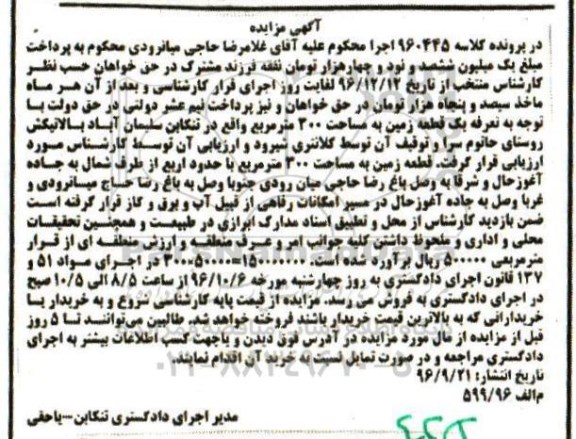 آگهی مزایده
در پرونده کلاسه ۹۶۰۴۴۵ اجرا محکوم علیه آقای غلامرضا حاجی میانرودی محکوم به پرداخت
مبلغ یک میلیون ششصد و نود و چهارهزار تومان نفقه فرزند مشترک در حق خواهان حسب نظر
کارشناس منتخب از تاریخ ۹۶/۱۲/۱۲ لغایت روز اجرای قرار کارشناسی و بعد از آن هر ماه
ماخذ سیصد و پنجاه هزار تومان در حق خواهان و نیز پرداخت نیم عشر دولتی در حق دولت با
توجه به تعرفه یک قطعه زمین به مساحت ۳۰۰ مترمربع واقع در تنکابن سلیمان آباد بالاتیکش
روستای حاتوم سرا و توقیف آن توسط کلانتری شیرود و ارزیابی آن توسط کارشناس مورد
ارزیابی قرار گرفت. قطعه زمین به مساحت ۳۰۰ مترمربع با حدود اربع از طرف شمال به جاده
آغوزحال و شرقا به وصل باغ رضا حاجی میان رودی جنوبا وصل به باغ رضا حاج میانرودی و
غربا وصل به جاده آغوزحال در مسیر امکانات رفاهی از قبیل آب و برق و گاز قرار گرفته است
ضمن بازدید کارشناس از محل و تطبیق اسناد مدارک ابرازی در طبیعت و همچنین تحقیقات
محلی و اداری و ملحوظ داشتن کلیه جوانب امر و عرف منطقه و ارزش منطقه ای از قرار
مترمربعی ۵۰۰۰۰۰ ریال برآورد شده در اجرای مواد ۵۱ و
۱۳۷ قانون اجرای دادگستری به روز چهارشنبه مورخه ۹۶/۱۰/۶ از ساعت ۸/۵ الی ۱۰/۵ صبح
در اجرای دادگستری به فروش می رسد. مزایده از قیمت پایه کارشناسی شروع و به خریدار یا
خریدارانی که به بالاترین قیمت خریدار باشند فروخته خواهد شد. طالبین می‌توانند تا ۵ روز
قبل از مزایده از مال مورد مزایده در آدرس فوق دیدن و یاجهت کسب اطلاعات بیشتر به اجرای
دادگستری مراجعه و در صورت تمایل نسبت به خرید آن اقدام نمایند.
تاریخ انتشار: ۹۶/۹/۲۱
م‌الف ۵۹۹/۹۶
مدیر اجرای دادگستری تنکابن-یاحقی
۰۲۱-۸۸۳۴۹۶۷۰-۵